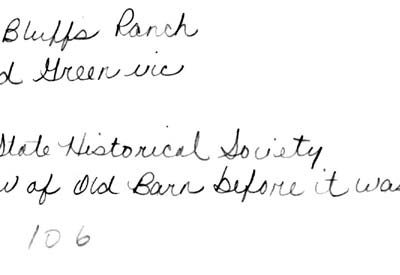 Bluffs Ranch
d Green vic
State Historical Society
w of Old Barn before it was
106